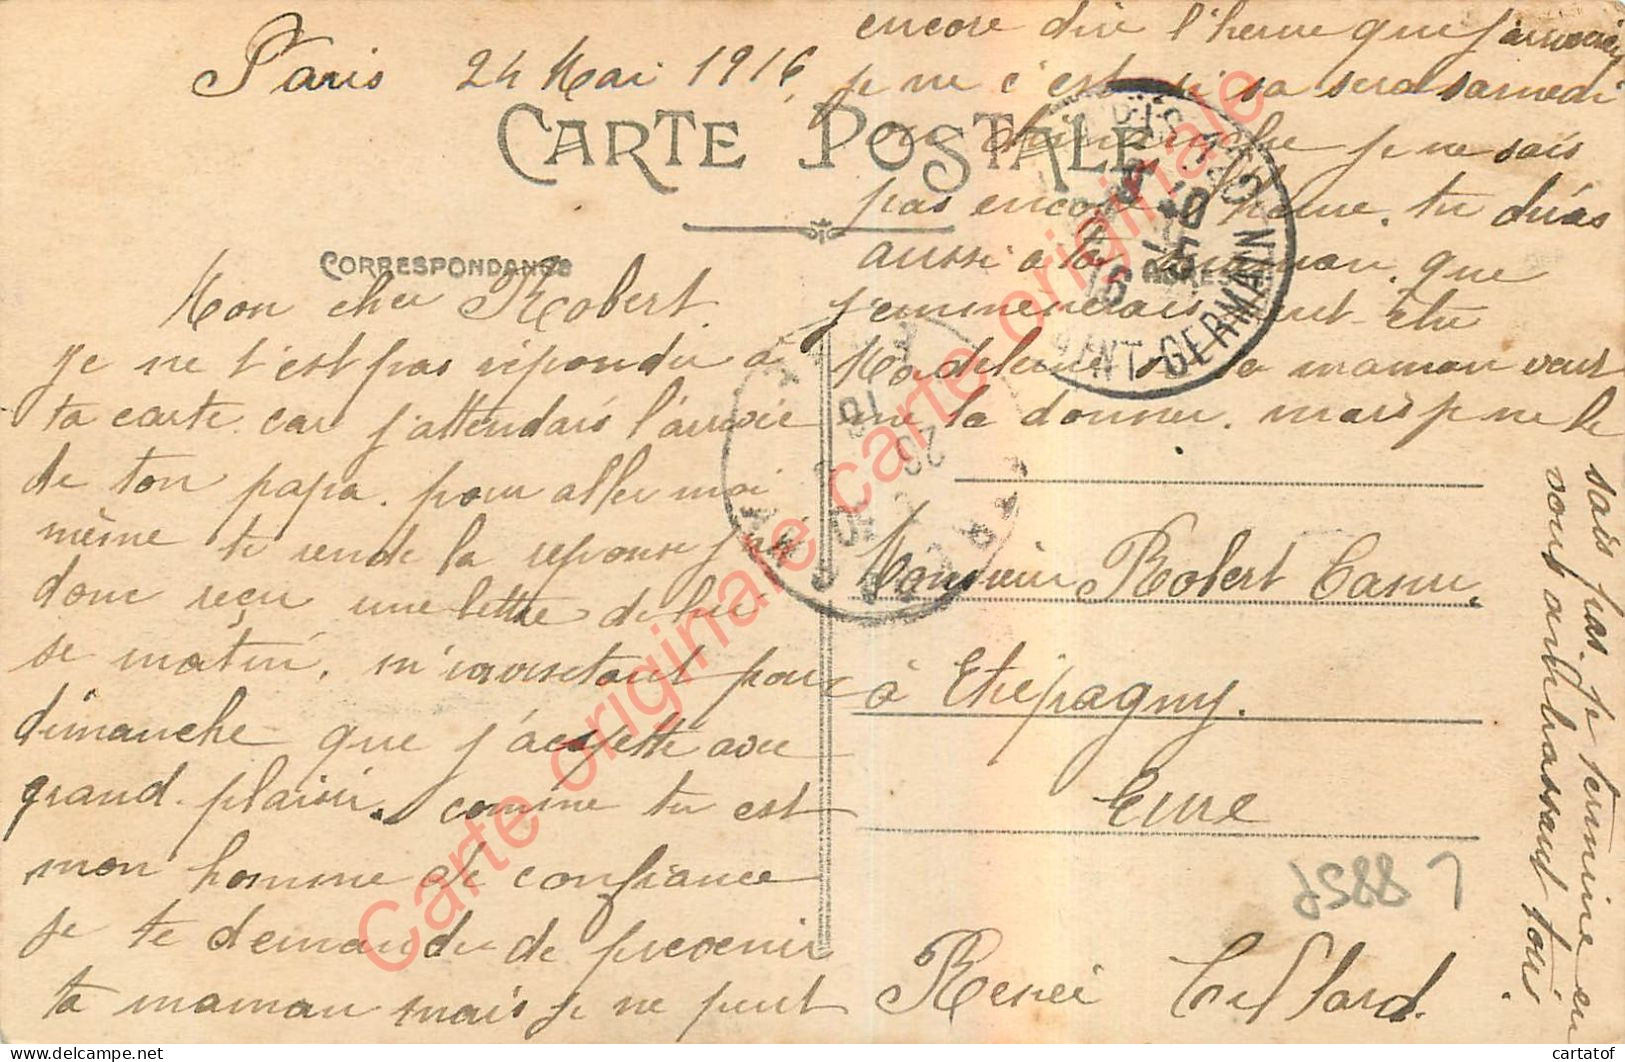 Paris 24 Mai 1916
CARTE POSTALE
CORRESPONDANCE
Mon cher Robert.
Je ne t'est pas répondu à
ta carte. car j'attendais l'arrivée
de ton papa. pour aller moi
même te rende la reponse j'ai
donc reçu une lettre de lui
se matin, m'invisetant pour
dimanche que j'acepette avec
grand plaisir. comme tu est
mon homme de confiance
je te demande de prevenir
ta maman mais je ne peut
encore dire l'heure que j'arriverai
je ne c'est si sa sera samedi
ou dimanche je ne sais
pas encore l'heure. tu diras
aussi a ta maman. que
j'emmenerais peut-etre
Madeleine si sa maman veut
me la donner. mais je ne le
sais pas. je termine en
vous embrassant tous.
Monsieur Robert Canu.
à Etrépagny.
Eure
Renée
PARIS
SAINT-GERMAIN
Carte originale carte originale carte originale
cartatof